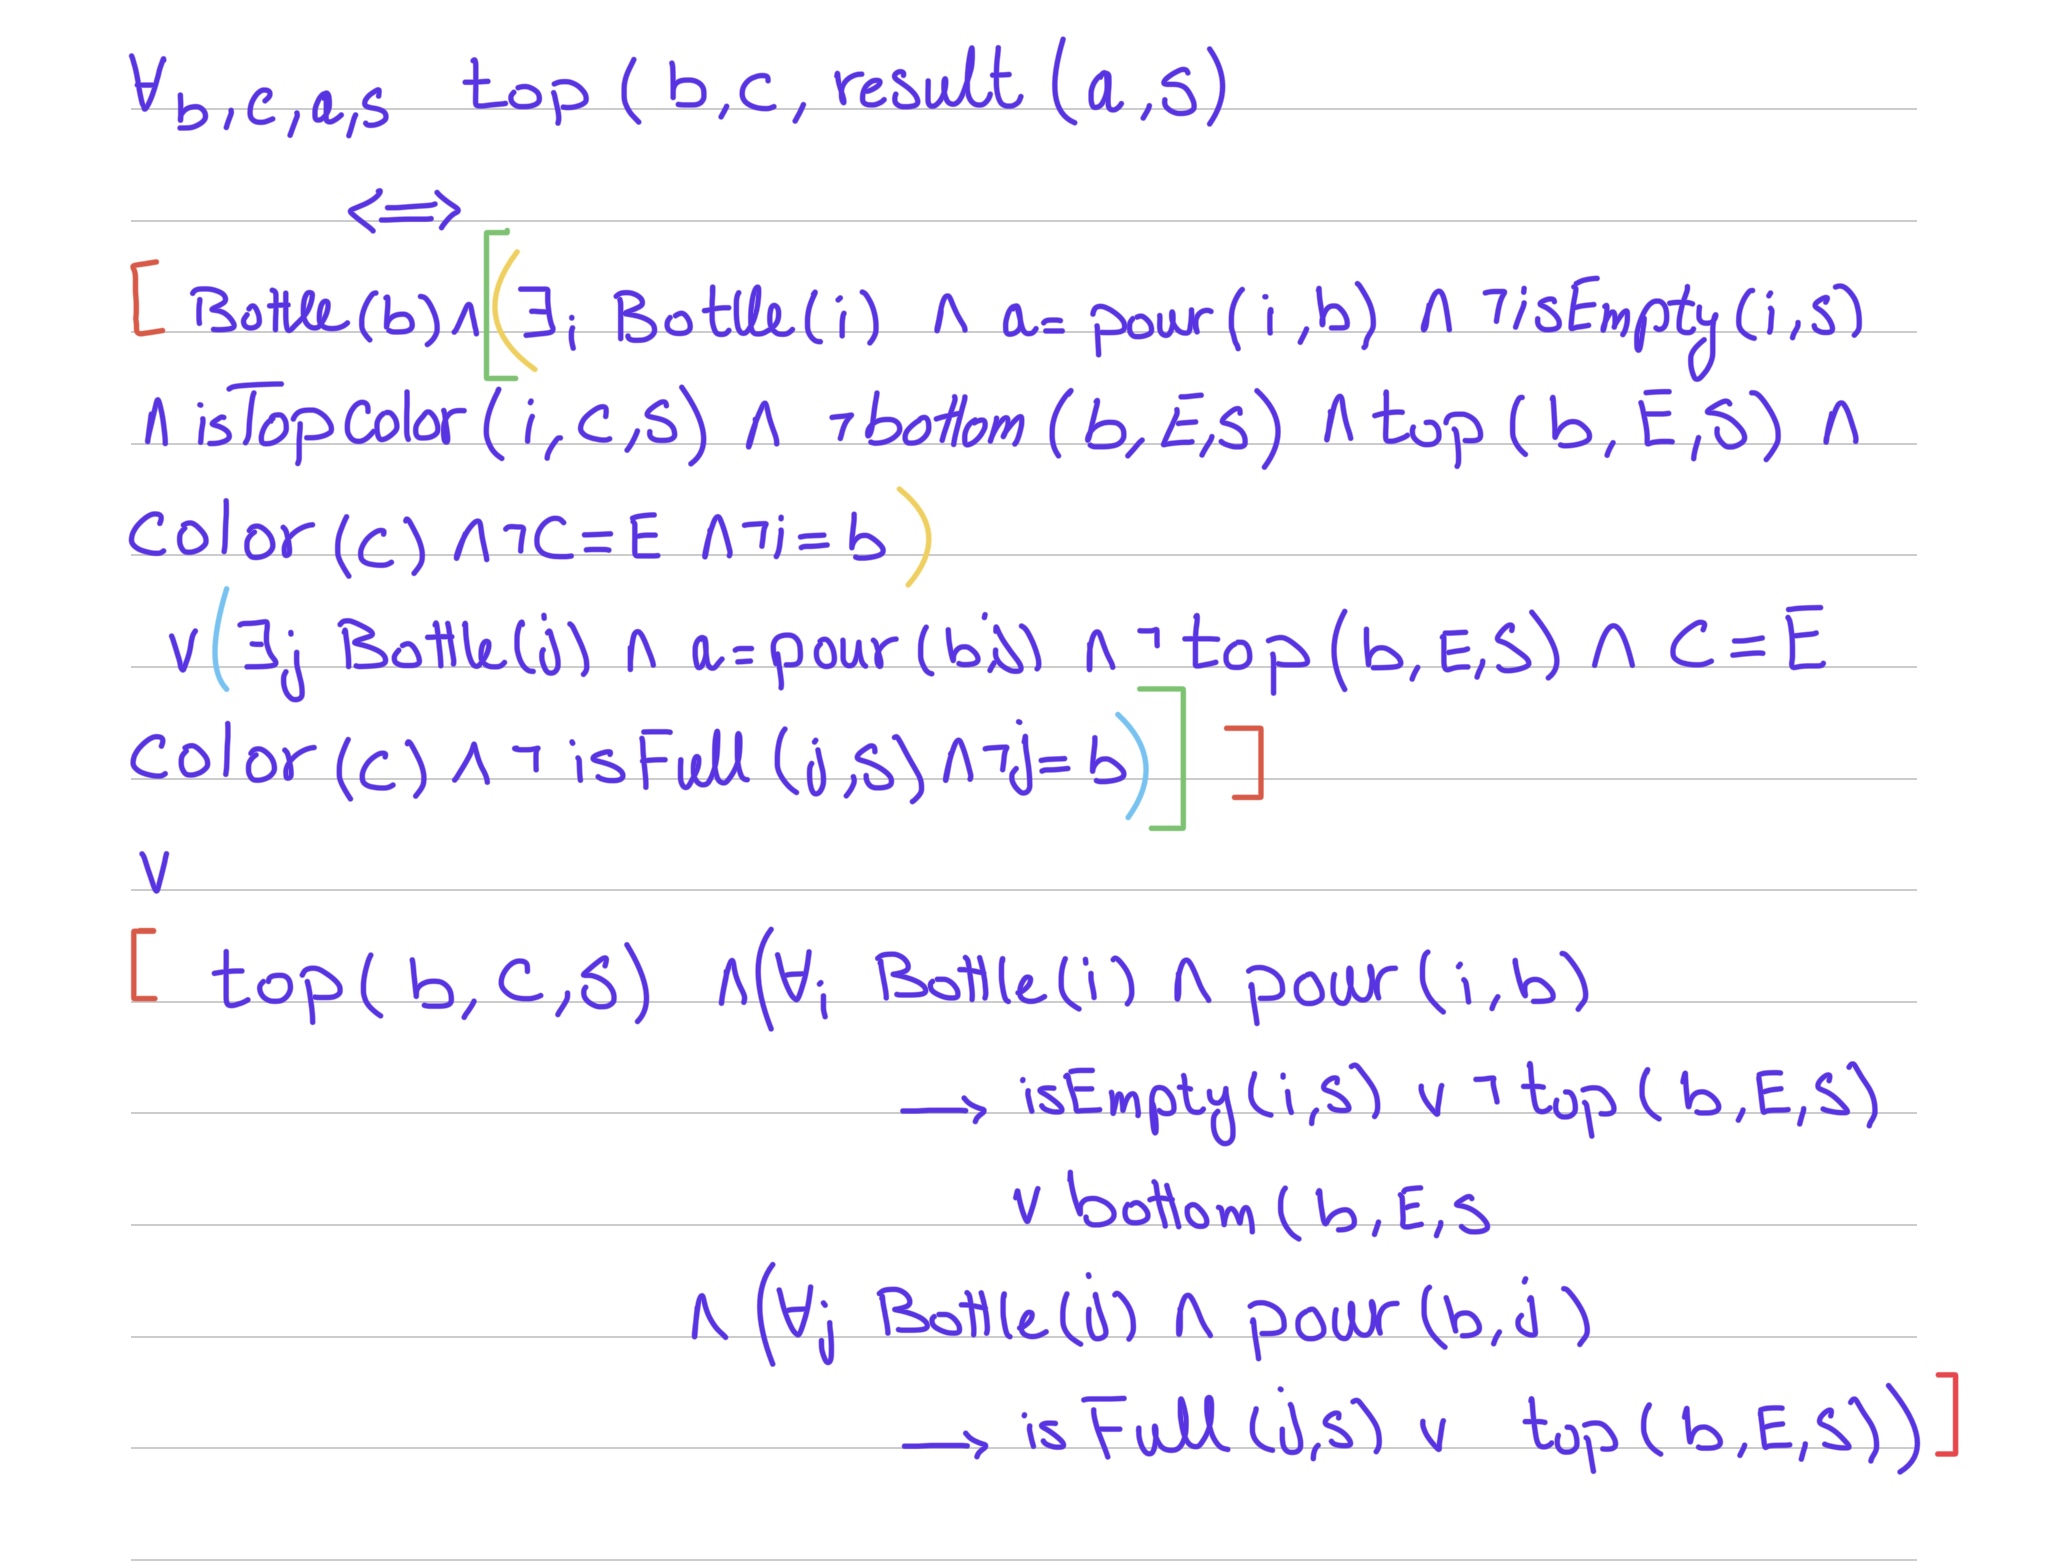 ∀b,c,a,s top(b,c,result(a,s)
<=>
[Bottle(b)∧[(∃i Bottle(i) ∧ a=pour(i,b) ∧ ¬isEmpty(i,s)
∧ isTopColor(i,c,s) ∧ ¬bottom(b,E,s) ∧ top(b,E,s) ∧
Color(c) ∧ ¬C=E ∧ ¬i=b)
∨ (∃j Bottle(j) ∧ a=pour(b,j) ∧ ¬top(b,E,s) ∧ C=E
Color(c) ∧ ¬isFull(j,s) ∧ ¬j=b)] ]
∨
[ top(b,C,s) ∧ (∀i Bottle(i) ∧ pour(i,b)
→ isEmpty(i,s) ∨ ¬top(b,E,s)
∨ bottom(b,E,s
∧ (∀j Bottle(j) ∧ pour(b,j)
→ isFull(j,s) ∨ top(b,E,s))]